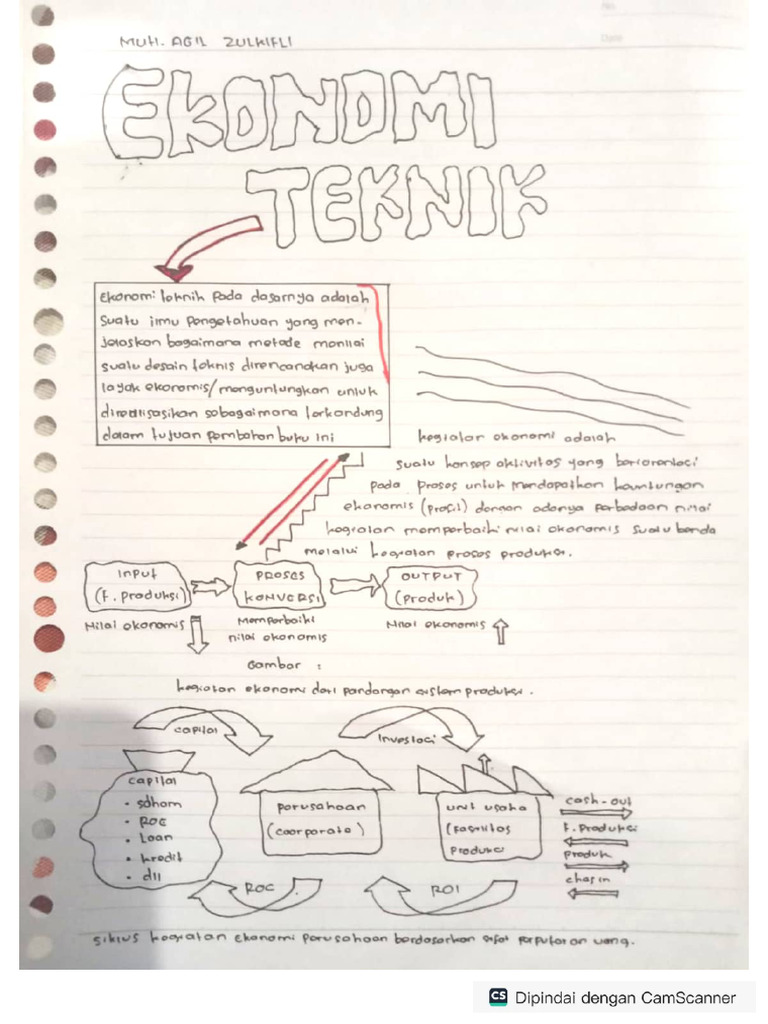 No.
Date
MUH. AGIL ZULKIFLI
EKONOMI
TEKNIK
Ekonomi teknik pada dasarnya adalah
Suatu ilmu pengetahuan yang men-
jelaskan bagaimana metode menilai
suatu desain teknis direncanakan juga
layak ekonomis/menguntungkan untuk
direalisasikan sebagaimana terkandung
dalam tujuan pembahan buku ini
kegiatan ekonomi adalah
suatu konsep aktivitas yang berorentasi
pada proses untuk mendapatkan keuntungan
ekonomis (profil) dengan adanya perbedaan nilai
kegiatan memperbaiki nilai ekonomis suatu benda
melalui kegiatan proses produksi.
INPUT
(F. produksi)
PROSES
KONVERSI
OUTPUT
(produk)
Nilai ekonomis
Memperbaiki
nilai ekonomis
Nilai ekonomis
Gambar :
kegiatan ekonomi dari pandangan sistem produksi.
capital
Investasi
capital
• saham
• ROC
• Loan
• kredit
• dll
perusahaan
(coorporate)
unit usaha
(Fasilitas
Produksi
cash-out
F. Produksi
Produk
chasin
ROC
ROI
siklus kegiatan ekonomi perusahaan berdasarkan sifat perputaran uang.
CS Dipindai dengan CamScanner